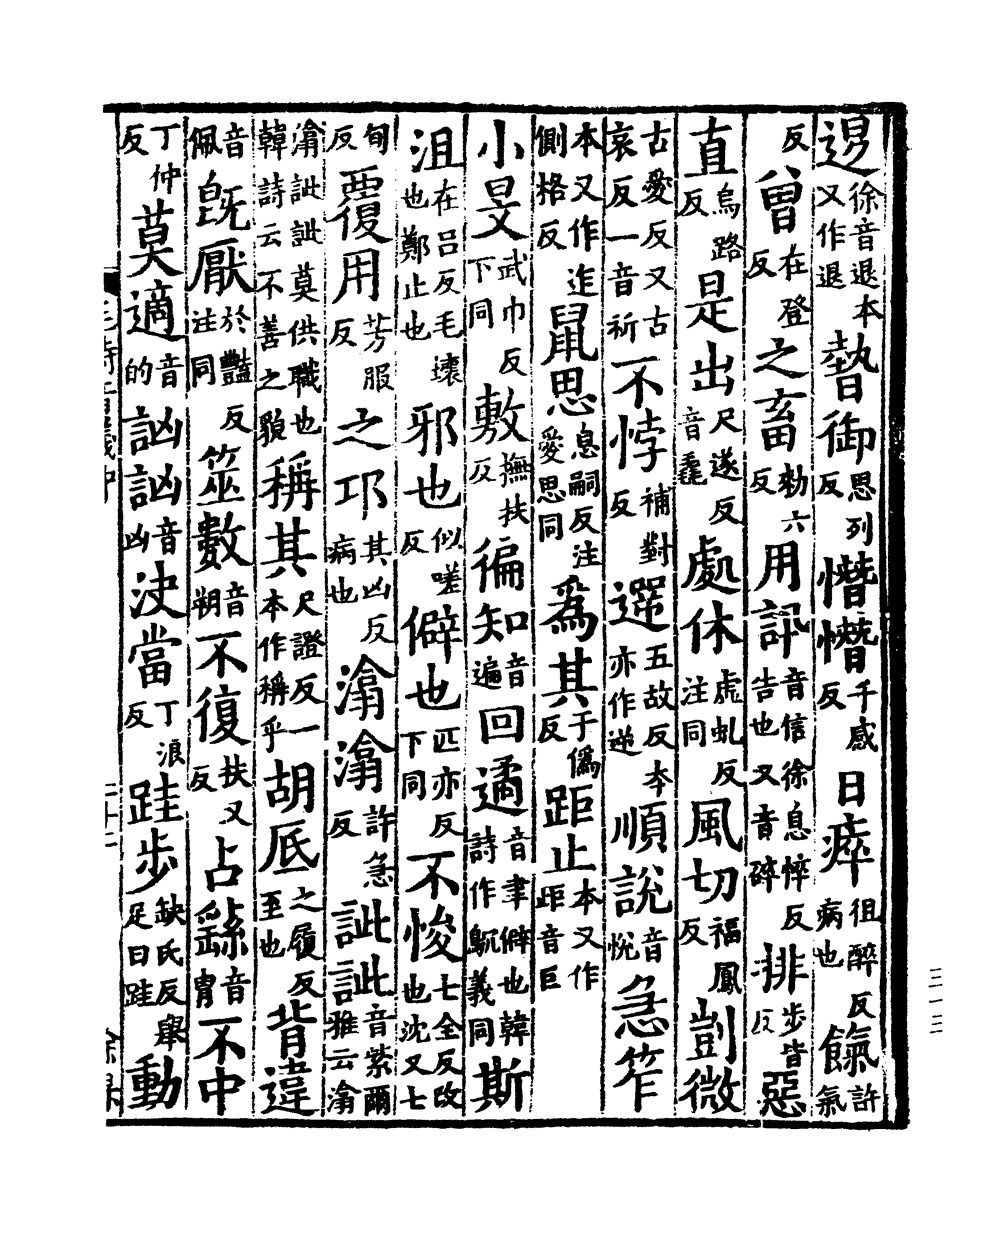 𨓤徐音退本又作退暬御思列反憯憯千感反日瘁徂醉反病也餼許氣
反曾在登反之畜勑六反用訊音信徐息悴反告也又音碎排步皆反惡
直烏路反是出尺遂反音毳處休虛虬反注同風切福鳳反剴微
古愛反又古哀反一音祈不悖補對反遻五故反本亦作逆順說音悅急笮
本又作迮側格反鼠思息嗣反注愛思同爲其于僞反距止本又作岠音巨
小旻武巾反下同敷撫扶反徧知音遍回遹音聿僻也韓詩作鴥義同斯
沮在呂反毛壞也鄭止也邪也似嗟反僻也匹亦反下同不悛七全反改也沈又七
旬反覆用芳服反之邛其凶反病也潝潝許急反訿訿音紫爾雅云潝
潝訿訿莫供職也韓詩云不善之貌稱其尺證反一本作稱乎胡厎之履反至也背違
音佩旣厭於豔反注同筮數音朔不復扶又反占繇音胄不中
丁仲反莫適音的訩訩音凶決當丁浪反跬步缺氏反舉足曰跬動
毛詩音義中 二十二
三一三